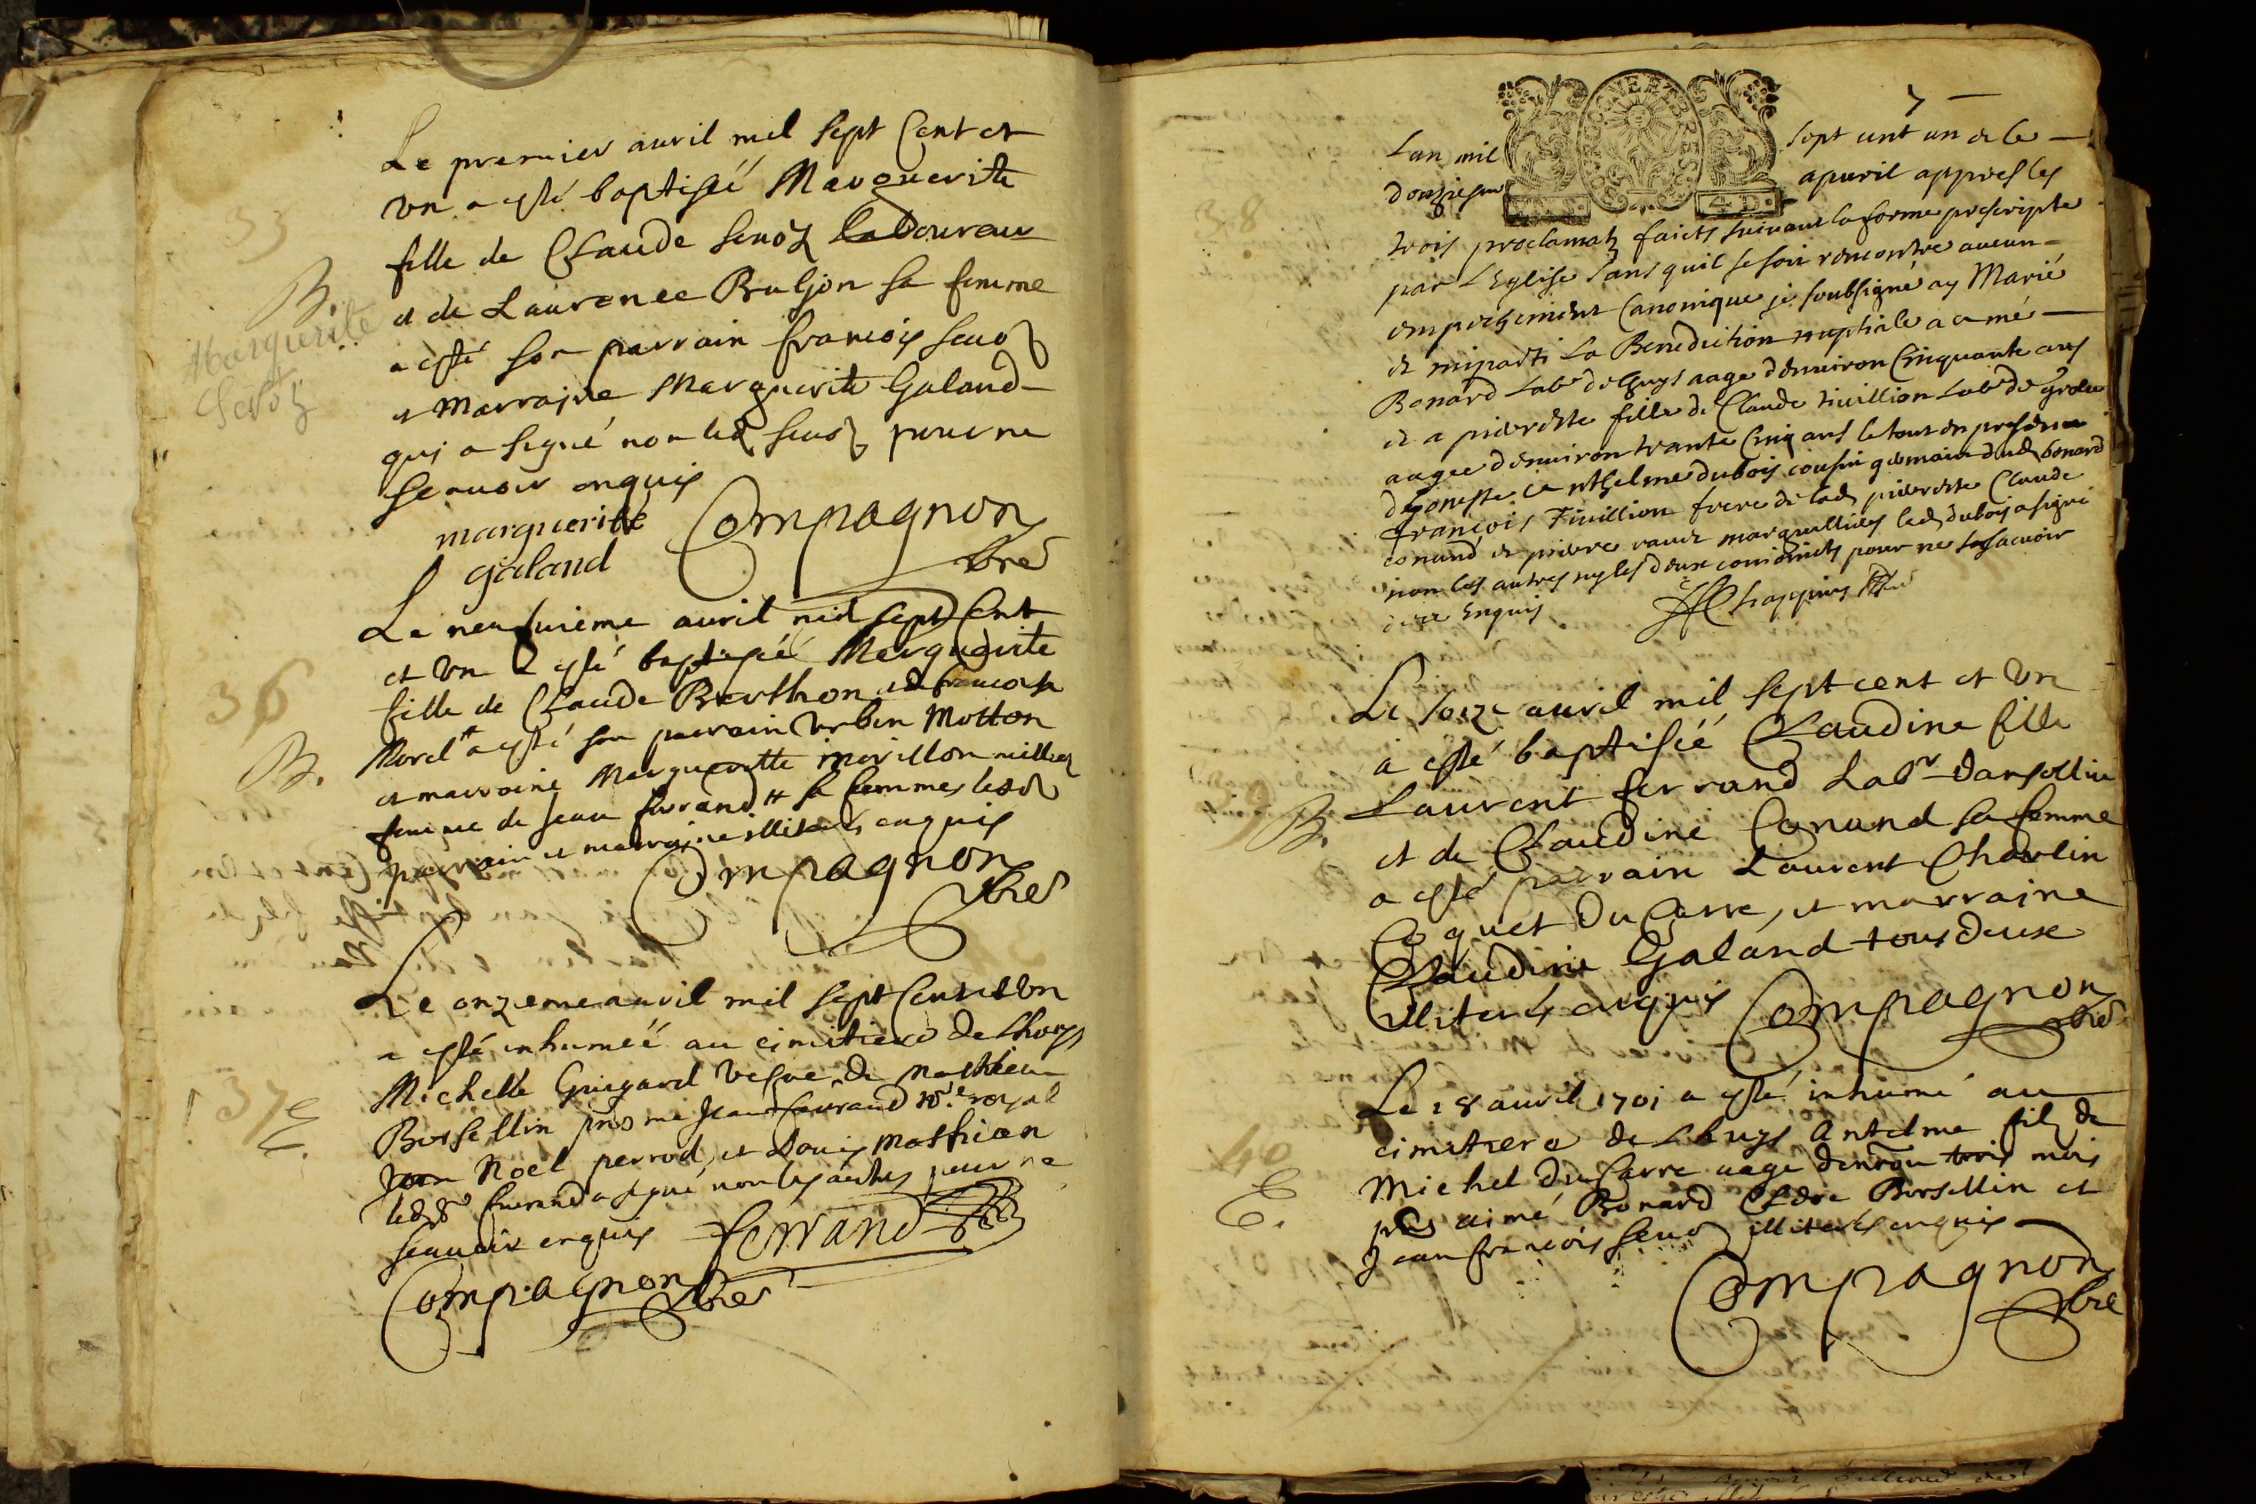 33
B.
Marguerite
Sevoz
Le premier avril mil sept Cent et
vn a esté baptiseé Marguerite
fille de Claude sevoz laboureur
et de Laurence Buljon sa femme
a esté son parrain francois sevoz
et Marraine Marguerite Galand
qui a signé non led sevoz pour ne
scavoir enquis
marguerite
galand
Compagnon
vbre
36
B.
Le neufuieme avril mil sept Cent
et vn a esté baptiseé Marguerite
fille de Claude Berthon et de francoise
Morel a esté son parrain vrben Motton
et marraine Marguerite morillon
femme de Jean ferrand sa femme lesd
parrain et marraine illiterés enquis
Compagnon
vbre
37
E.
Le onzeme avril mil sept Cent et vn
a esté inhumeé au cimitiere de Lhuys
Michelle Guigard vesve de Mathieu
Borsellin pns me Jean ferrand no.re royal
Noel perrod, et Louis Mathian
led sr ferrand a signé non les autres pour ne
scauoir enquis ferrand
Compagnon
vbre
7
38
Lan mil sept cent un et le
douziesme apuril appres les
trois proclamatz faicts suivant la forme prescripte
par LEglise sans quil se soit rencontre aucun
empechement Canonique je soubsigné ay Marié
et miparti La Benediction nuptiale a aimé
Bonard Labr de Lhuys aage denuiron Cinquante ans
et a pierrette fille de Claude tiuillion Labr de grolee
aagee denuiron trante Cinq ans le tout en presence
dhoneste Anthelme dubois cousin germain dud bonard
françois Tiuillion frere de lad pierrette Claude
conand et pierre ravet marguilliers led dubois a signé
non les autres ny les deux conioincts pour ne scavoir
de ce Enquis
Chappuis
B.
Le seize auril mil sept cent et vn
a esté baptiseé Claudine fille
Laurent ferrand Labr dansollin
et de Claudine Conand sa femme
a esté parrain Laurent Charlin
Coquet du Carre, et marraine
Claudine Galand tous deux
illiterés enquis
Compagnon
vbre
40
E.
Le 18 auril 1701 a esté inhumé au
cimitiere de Lhuys Antelme filz de
Michel du Carre aagé denron trois mois
pns aimé Bonard Cldre Borsellin et
Jean francois sevoz illiterés enquis
Compagnon
vbre